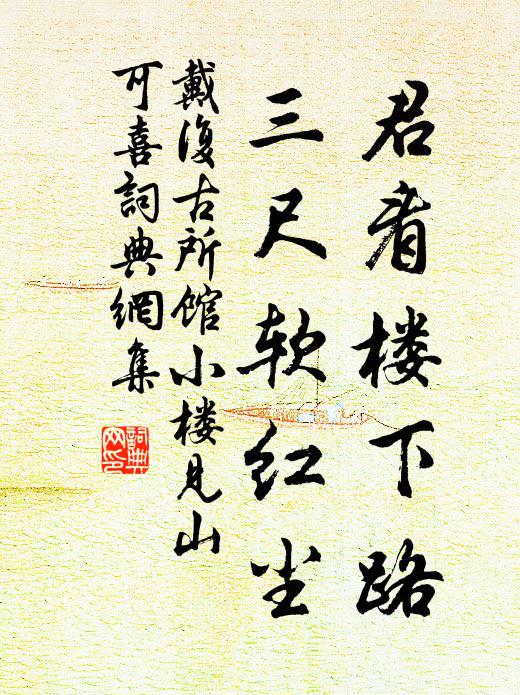 君看楼下路
三尺软红尘
戴復古所馆小楼見山
可喜詞典網集
詞典
网印